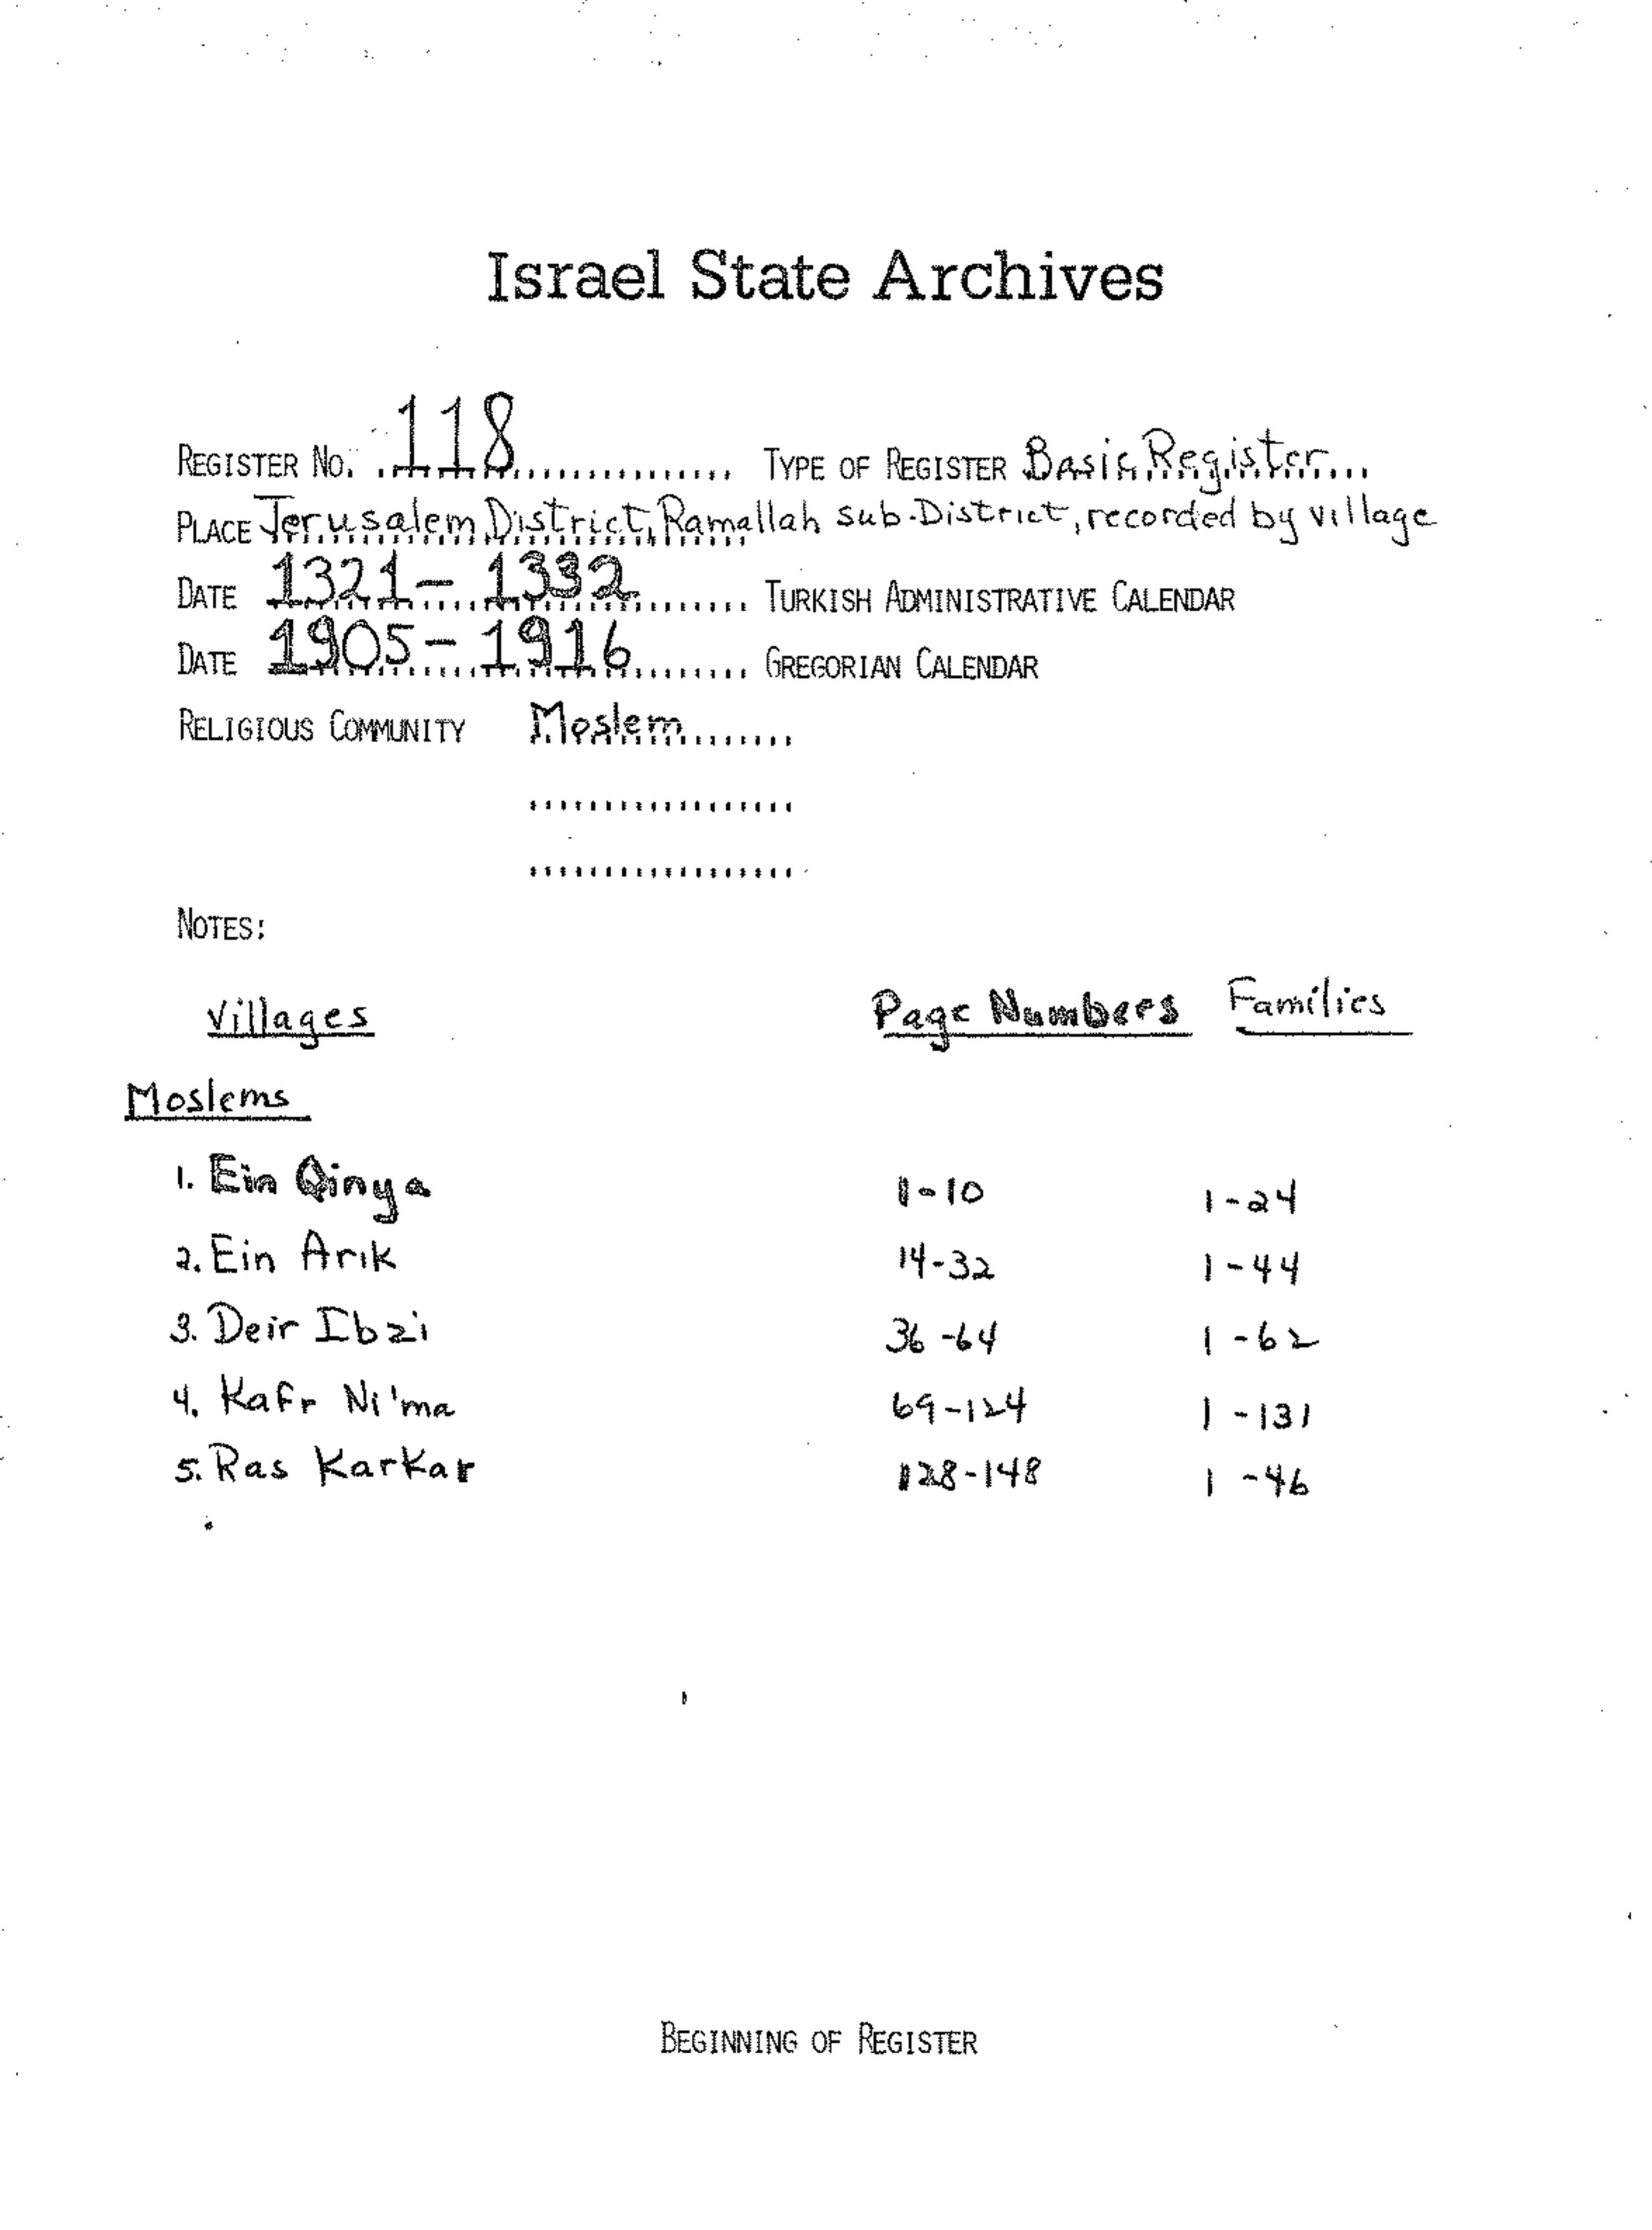 Israel State Archives
REGISTER NO. 118 TYPE OF REGISTER Basic Register
PLACE Jerusalem District, Ramallah sub-District, recorded by village
DATE 1321-1332 TURKISH ADMINISTRATIVE CALENDAR
DATE 1905-1916 GREGORIAN CALENDAR
RELIGIOUS COMMUNITY Moslem
NOTES:
Villages Page Numbers Families
Moslems
1. Ein Qinya 1-10 1-24
2. Ein Arik 14-32 1-44
3. Deir Ibzi 36-64 1-62
4. Kafr Ni'ma 69-124 1-131
5. Ras Karkar 128-148 1-46
BEGINNING OF REGISTER